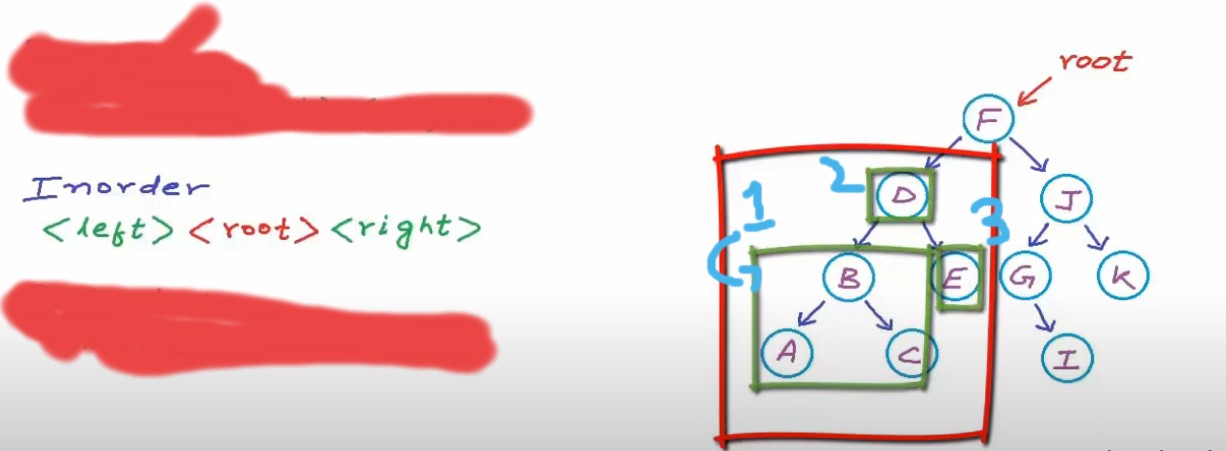 Inorder
<left> <root> <right>
root
F
2 D J
1
3
B E G K
A C I